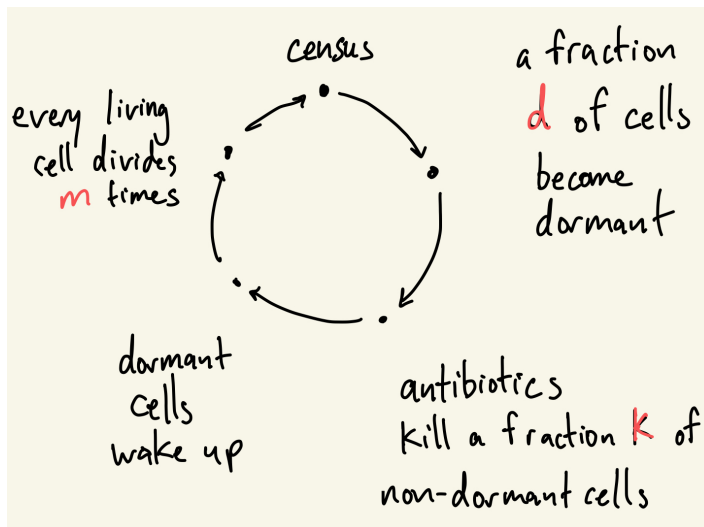 census
a fraction
d of cells
become
dormant
antibiotics
kill a fraction k of
non-dormant cells
dormant
cells
wake up
every living
cell divides
m times